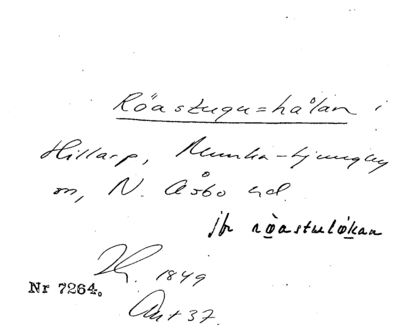 Röastugu=hålan i
Hillarp, Munka-Ljungby
sn, N. Åsbo hd.
jfr röastuelökan
1849
Nr 7264.
Ant 37.